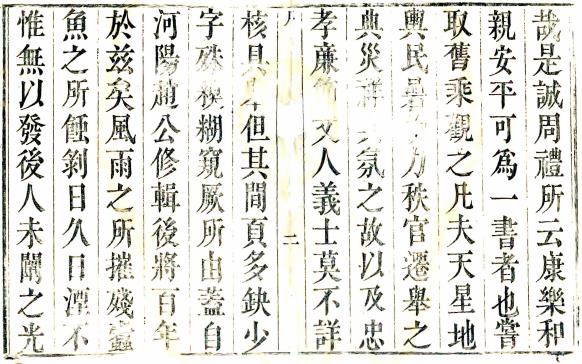 哉是誠周禮所云康樂和
親安平可爲一書者也嘗
取舊乘觀之凡夫天星地
輿民力秩官遷舉之
典災祥氛之故以及忠
孝廉節文人義士莫不詳
二
核具但其間頁多缺少
字殊糢糊窺厥所由蓋自
河陽趙公修輯後將百年
於兹矣風雨之所摧殘蠹
魚之所蝕剝日久日湮不
惟無以發後人未闡之光